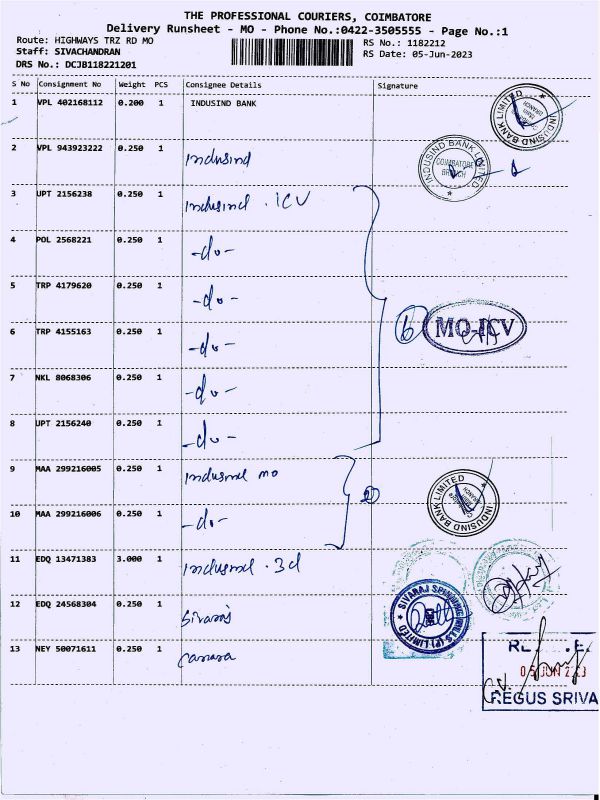 THE PROFESSIONAL COURIERS, COIMBATORE
Delivery Runsheet - MO - Phone No.:0422-3505555 - Page No.:1
Route: HIGHWAYS TRZ RD MO
RS No.: 1182212
Staff: SIVACHANDRAN
RS Date: 05-Jun-2023
DRS No.: DCJB118221201
S No Consignment No Weight PCS Consignee Details Signature
1 VPL 402168112 0.200 1 INDUSIND BANK
INDUSIND BANK LIMITED
2 VPL 943923222 0.250 1 Indusind
INDUSIND BANK LIMITED
COIMBATORE
BRANCH
3 UPT 2156238 0.250 1 Indusind . ICV
4 POL 2568221 0.250 1 -do-
5 TRP 4179620 0.250 1 -do-
6 TRP 4155163 0.250 1 -do-
6 MO-ICV
7 NKL 8068306 0.250 1 -do-
8 UPT 2156240 0.250 1 -do-
9 MAA 299216005 0.250 1 Indusind mo
2
INDUSIND BANK LIMITED
10 MAA 299216006 0.250 1 -do-
11 EDQ 13471383 3.000 1 Indusind . 3d
12 EDQ 24568304 0.250 1 Sivaraj
SIVARAJ SPINNING MILLS (P) LIMITED
13 NEY 50071611 0.250 1 canara
05 JUN 2023
REGUS SRIVA